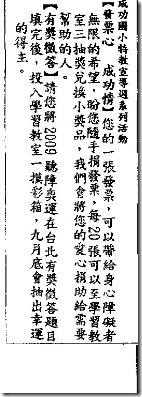 成功國小特教宣導週系列活動
【發票心　成功情】您的一張發票，可以帶給身心障礙者
無限的希望，盼您隨手捐發票，每20張可以至學習教
室三抽獎兌換小獎品，我們會將您的愛心捐助給需要
幫助的人。
【有獎徵答】請您將2009聽障奧運在台北有獎徵答題目
填完後，投入學習教室一摸彩箱，九月底會抽出幸運
的得主。